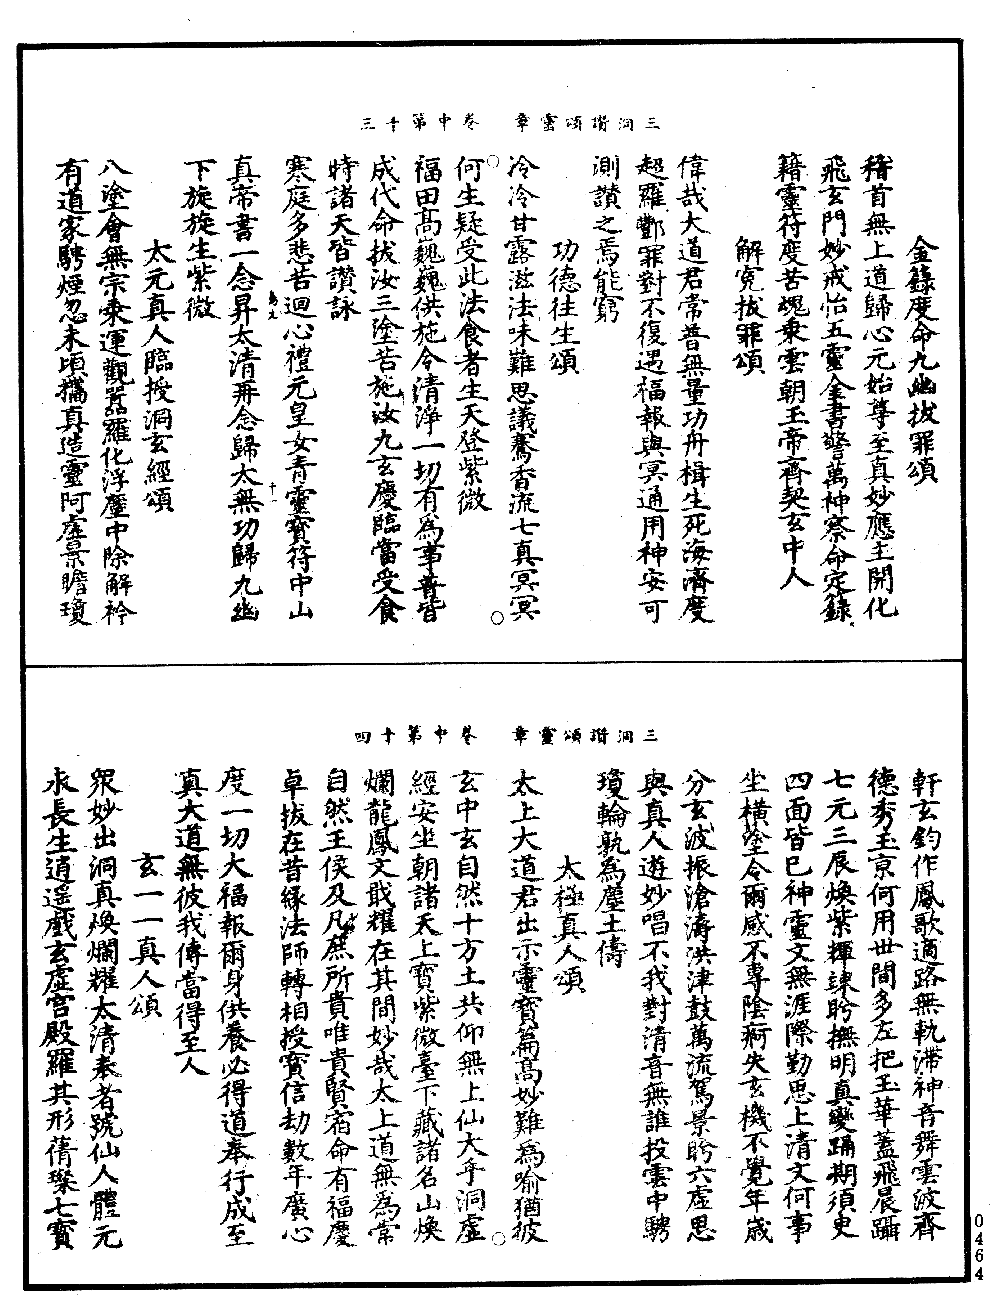 三洞讚頌靈章　卷中第十三
金籙度命九幽拔罪頌
稽首無上道歸心元始尊至真妙應主開化
飛玄門妙戒怡五靈金書警萬神察命定錄
籍靈符度苦魂乘雲朝玉帝齊契玄中人
解冤拔罪頌
偉哉大道君常普無量功舟楫生死海濟度
超羅酆罪對不復遇福報與冥通用神安可
測讚之焉能窮
功德往生頌
冷冷甘露滋法味難思議騫香流七真冥冥
何生疑受此法食者生天登紫微
福田高巍巍供施令清淨一切有為事普皆
成代命拔汝三塗苦施汝九玄慶臨當受食
時諸天皆讚詠
寒庭多悲苦迴心禮元皇女青靈寶符中山
真帝書一念昇太清再念歸太無功歸九幽
下旋旋生紫微
太元真人臨授洞玄經頌
八塗會無宗乘運觀囂羅化浮塵中際解衿
有道家騁煙忽未頃攜真造靈阿虛景瞻瓊
三洞讚頌靈章　卷中第十四
軒玄鈞作鳳歌適路無軌滯神音舞雲波齊
德秀玉京何用世間多左把玉華蓋飛晨躡
七元三辰煥紫輝竦眄撫明真變踊期須臾
四面皆已神靈文無涯際勤思上清文何事
坐橫塗令爾感不專陰痾失玄機不覺年歲
分玄波振滄濤洪津鼓萬流駕景眄六虛思
與真人遊妙唱不我對清音無誰投雲中騁
瓊輪孰為塵土儔
太極真人頌
太上大道君出示靈寶篇高妙難為喻猶彼
玄中玄自然十方土共仰無上仙大乎洞虛
經安坐朝諸天上寶紫微臺下藏諸名山煥
爛龍鳳文戢耀在其間妙哉太上道無為常
自然王侯及凡庶所貴唯貴賢宿命有福慶
卓拔在昔緣法師轉相授寶信劫數年廣心
度一切大福報爾身供養必得道奉行成至
真大道無彼我傳當得至人
玄一一真人頌
眾妙出洞真煥爛耀太清奉者號仙人體元
永長生逍遙戲玄虛宮殿羅其形蒨璨七寶
0464